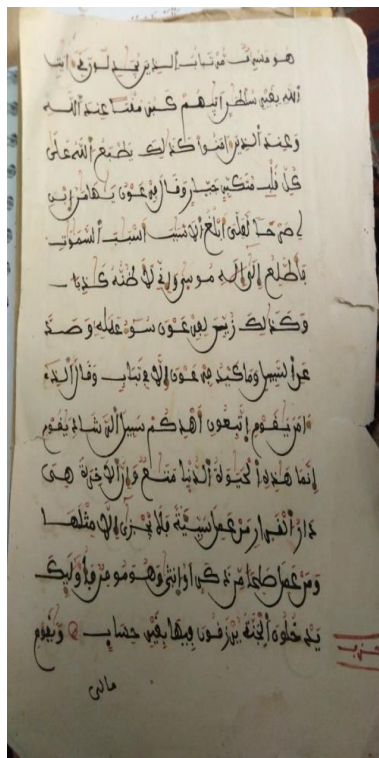 هو مسرف مرتاب الذين يجدلون في ءايت
الله بغير سلطن اتيهم كبر مقتا عند الله
وعند الذين ءامنوا كذلك يطبع الله على
كل قلب متكبر جبار وقال فرعون يهمن ابن
لي صرحا لعلي أبلغ الاسبب اسبب السموت
فأطلع إلى إله موسى وإني لأظنه كذبا
وكذلك زين لفرعون سوء عمله وصد
عن السبيل وما كيد فرعون إلا في تباب وقال الذي
ءامن يقوم اتبعون أهدكم سبيل الرشاد يقوم
إنما هذه الحيوة الدنيا متع وإن الاخرة هي
دار القرار من عمل سيئة فلا يجزى إلا مثلها
ومن عمل صلحا من ذكر اوانثى وهو مومن فأوليك
يدخلون الجنة يرزقون فيها بغير حساب ويقوم
مالى